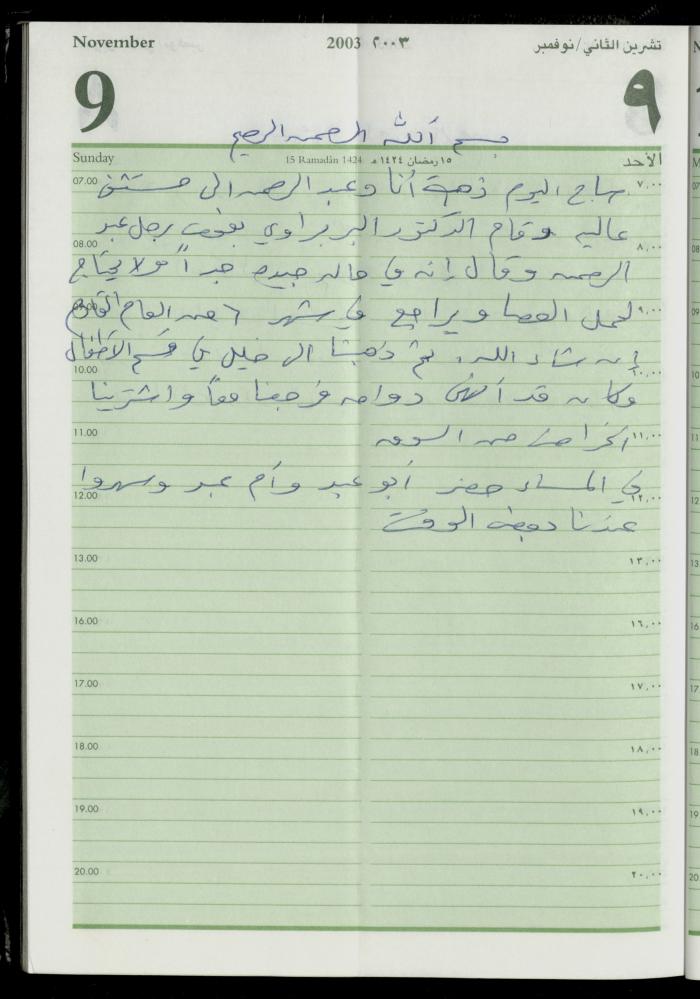 November 2003 ٢٠٠٣ تشرين الثاني/نوفمبر
9 ٩
بسم الله الرحمن الرحيم
Sunday 15 Ramadān 1424 ١٥ رمضان ١٤٢٤ هـ الأحد
07.00 صباح اليوم ذهبت أنا وعبد الرحمن الى مستشفى ٧,٠٠
عاليه وقام الدكتور البربراوي بفحص رجل عبد
08.00 ٨,٠٠
الرحمن وقال إنه في حاله جيده جداً ولا يحتاج
09.00 لحمل العصا ويراجع في شهر ٦ من العام القادم ٩,٠٠
إن شاء الله. ثم ذهبنا الى خليل في قسم الأطفال
10.00 ١٠,٠٠
وكان قد أنهى دوامه فرجعنا معاً واشترينا
11.00 أغراضا من السوق ١١,٠٠
في المساء حضر أبو عبد وأم عبد وسهروا
12.00 ١٢,٠٠
عندنا بعض الوقت
13.00 ١٣,٠٠
16.00 ١٦,٠٠
17.00 ١٧,٠٠
18.00 ١٨,٠٠
19.00 ١٩,٠٠
20.00 ٢٠,٠٠